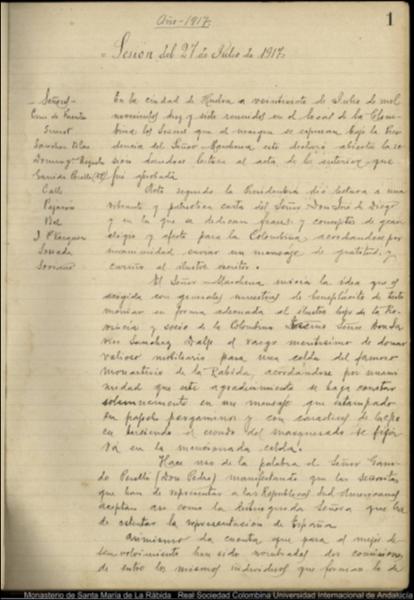 Año-1917.
1
Sesión del 27 de Julio de 1917.
Señores
En la ciudad de Huelva a veintisiete de Julio de mil
novecientos diez y siete reunidos en el local de la Colom-
bina los señores que al margen se expresan, bajo la Presi-
dencia del Señor Marchena este declaró abierta la se-
sión dandose lectura al acta de la anterior que
Garrido Perelló
fué aprobada.
Calle
Acto seguido la Presidencia dió lectura a una
vibrante y patriotica carta del Señor Don José de Diego
Bel
y en la que se dedican frases y conceptos de gran
J. P. Vazquez
elogio y afecto para la Colombina, acordandose por
unanimidad enviar un mensaje de gratitud y
Soriano
cariño al ilustre escritor.
El Señor Marchena inicia la idea que es
acogida con generales muestras de beneplácito de testi-
moniar en forma adecuada al ilustre hijo de la Pro-
vincia y socio de la Colombina Excmo Señor
Sanchez Dalp el rasgo meritisimo de donar
valioso mobiliario para una celda del famoso
monasterio de la Rabida, acordandose por unani-
midad que este agradecimiento se haga constar
solemnemente en un mensaje que estampado
en papel pergamino y con caracteres de
el escudo del marquesado se fija-
rá en la mencionada celda.
Hace uso de la palabra el Señor Garri-
do Perelló (Don Pedro) manifestando que las señoritas
que han de representar a las Republicas Sud Americanas
aceptan asi como la distinguida Señora que ha
de ostentar la representacion de España.
Asimismo da cuenta que para el mejor de-
senvolvimiento han sido nombradas dos comisiones
de entre los mismos individuos que forman la de
Monasterio de Santa María de La Rábida Real Sociedad Colombina Universidad Internacional de Andalucía